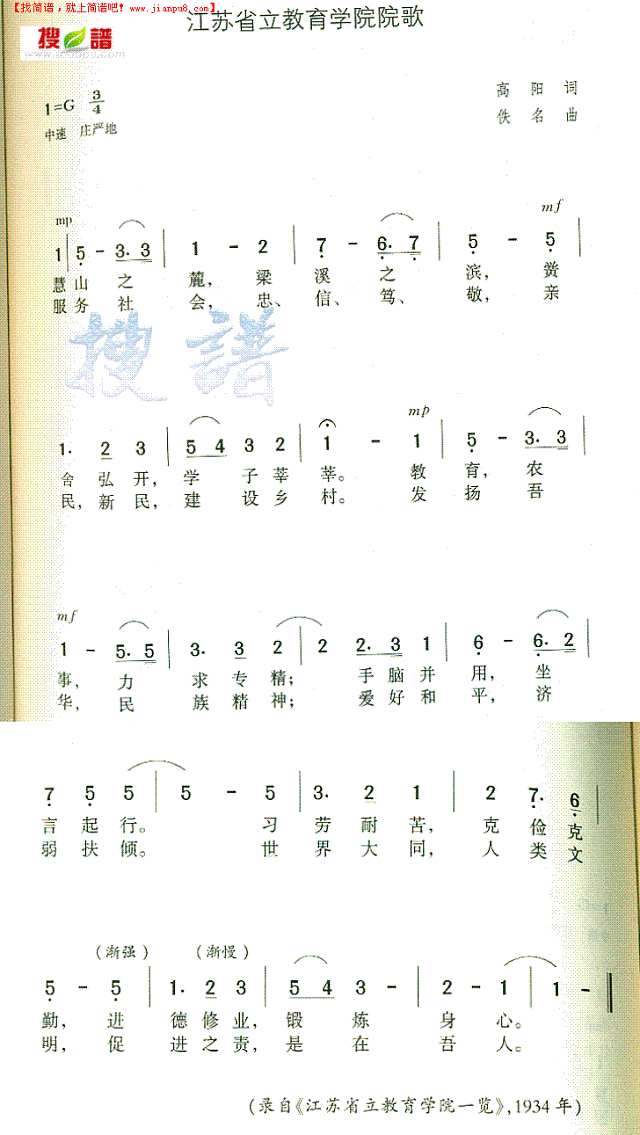 【找简谱，就上简谱吧！www.jianpu8.com】
搜谱
www.sooopu.com
江苏省立教育学院院歌
1=G 3/4
中速 庄严地
高 阳 词
佚 名 曲
mp mf
1 | 5 - 3. 3 | 1 - 2 | 7 - 6. 7 | 5 - 5 |
慧山之麓，梁溪之滨，黉
服务社会，忠、信、笃、敬，亲
搜谱
mp
1. 2 3 | 5 4 3 2 | 1 - 1 | 5 - 3. 3 |
舍弘开，学子莘莘。教育，农
民，新民，建设乡村。发扬吾
mf
1 - 5. 5 | 3. 3 2 | 2 2. 3 1 | 6 - 6. 2 |
事，力求专精；手脑并用，坐
华，民族精神；爱好和平，济
7 5 5 | 5 - 5 | 3. 2 1 | 2 7. 6 |
言起行。习劳耐苦，克俭克
弱扶倾。世界大同，人类文
(渐强) (渐慢)
5 - 5 | 1. 2 3 | 5 4 3 - | 2 - 1 | 1 - ‖
勤，进德修业，锻炼身心。
明，促进之责，是在吾人。
(录自《江苏省立教育学院一览》,1934年)